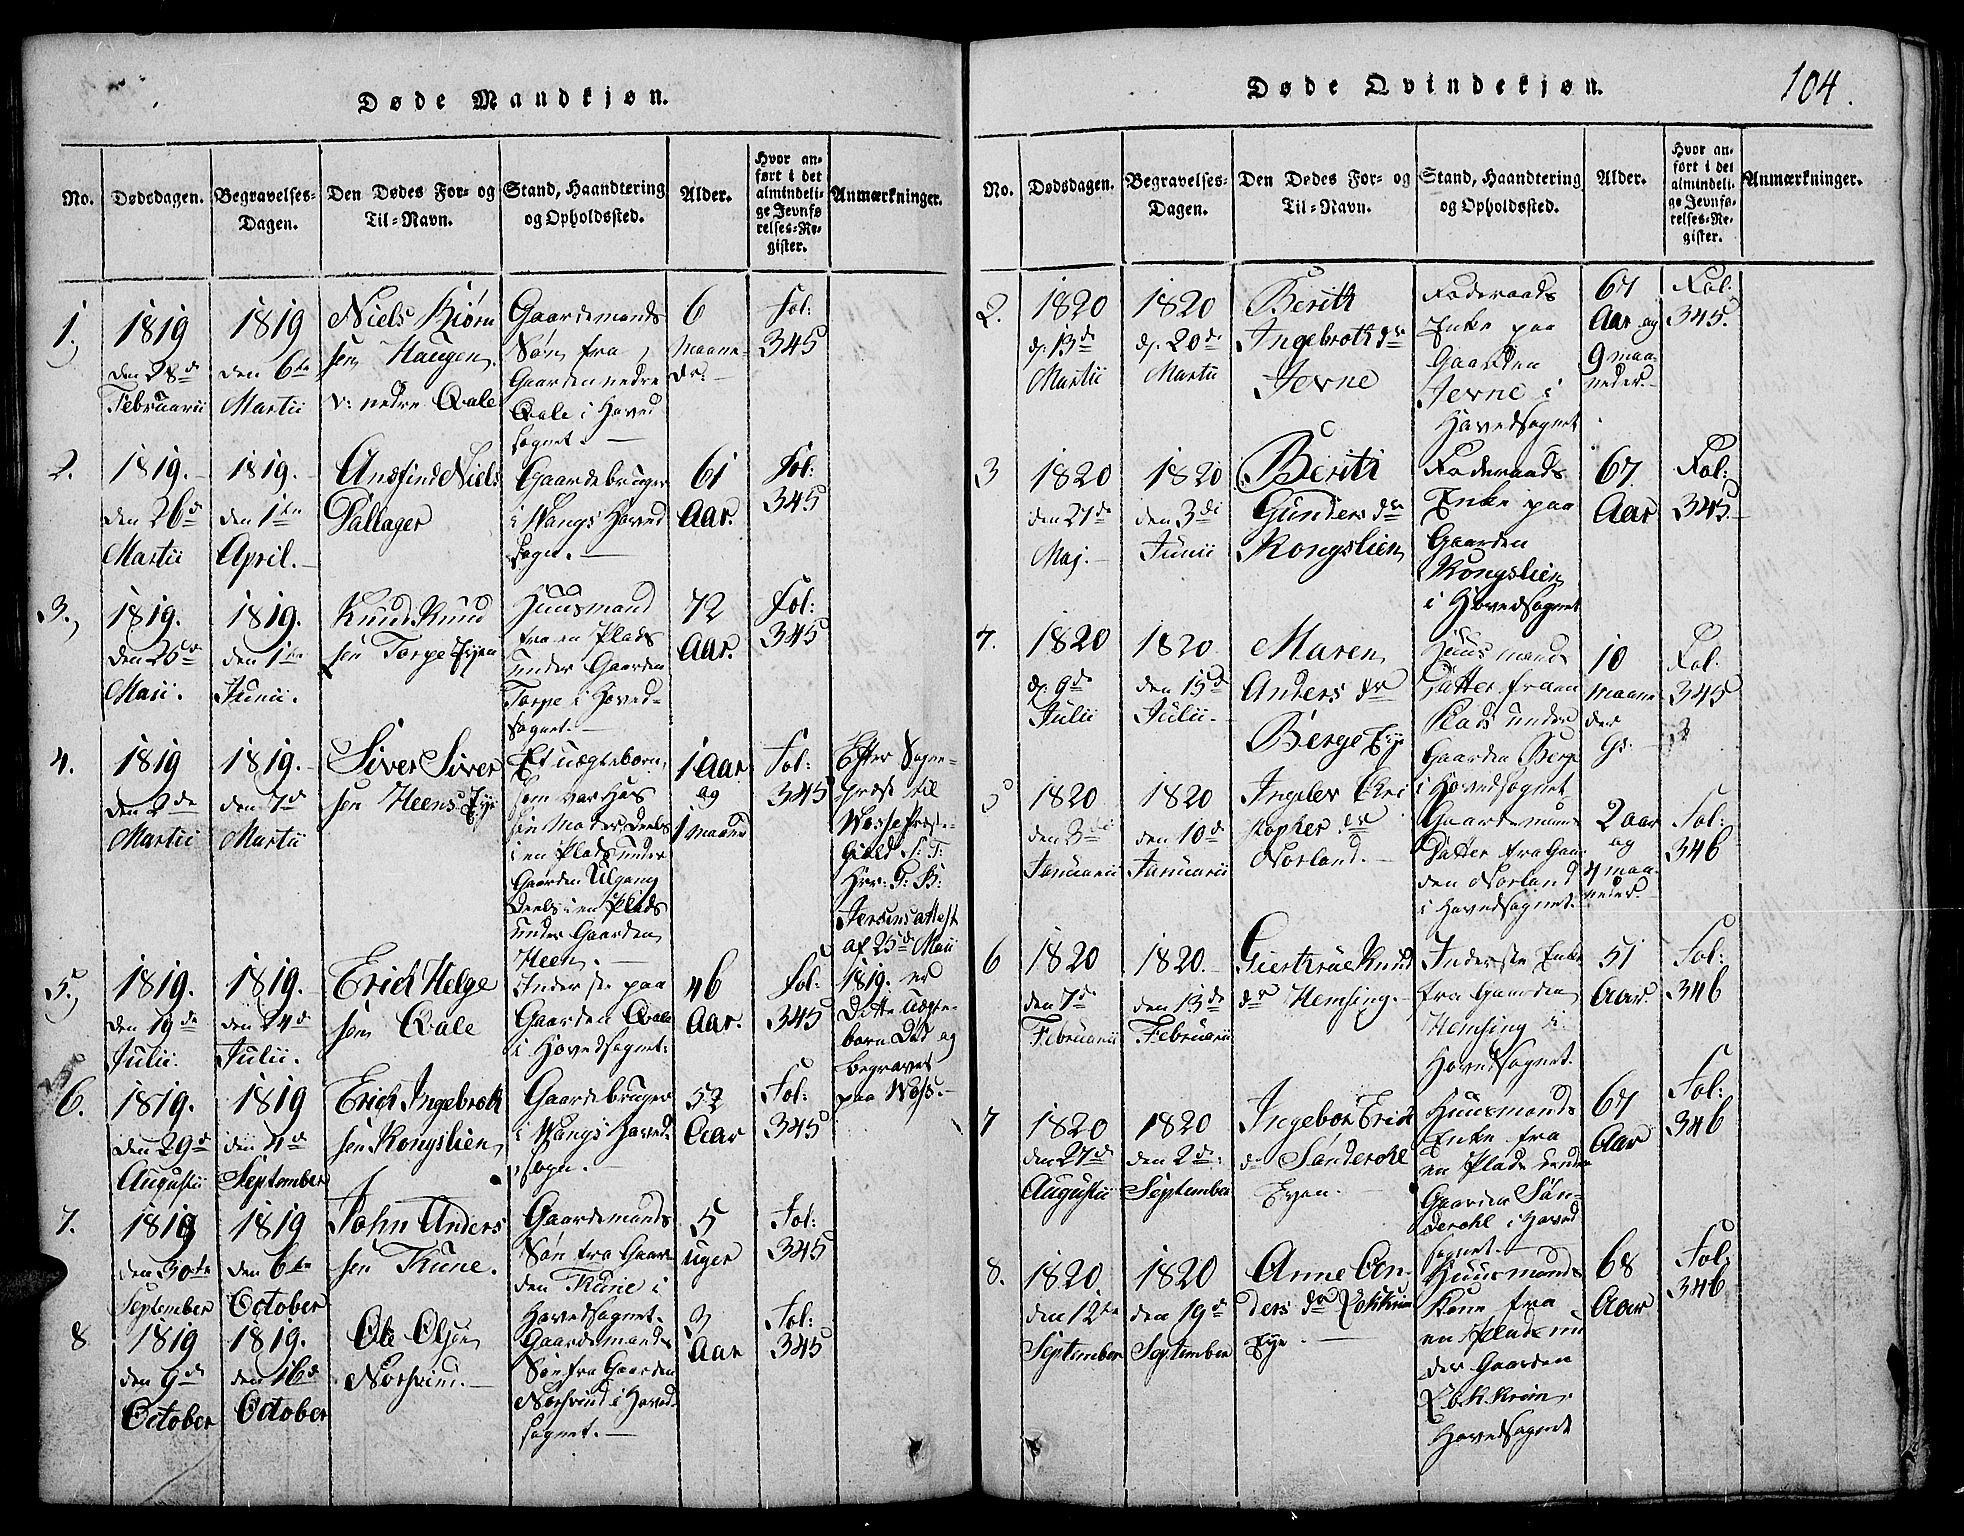 Døde Mandkjøn.
No.
Dødsdagen.
Begravelses-
Dagen.
Den Dødes For- og
Til-Navn.
Stand, Haandtering
og Opholdssted.
Alder.
Hvor an-
ført i det
almindeli-
ge Jevnfø
relses-Re-
gister.
Anmærkninger.
1.
1819
den 28de
Februarii
1819
den 6te
Martii
Niels Kiørn
sen Haugen
v: nedre Qvale
Gaardemands
Søn fra
Gaarden nedre
Qvale i Hoved
sognet.
6
Maane-
dr.
Fol:
345
2.
1819.
den 26de
Martii
1819.
den 1te
April.
Andfind Niels
Pallager
Gaardebruger
i Wangs Hoved
sogn.
61
Aar.
Fol:
345
3.
1819.
den 25de
Maii.
1819.
den 1te
Junii.
Knud Knud
sen Torpe Eyen
Huusmand
fra en Plads
under Gaarden
Torpe i Hoved-
sognet.
72
Aar.
Fol:
345
4.
1819
den 2de
Martii
1819.
den 7de
Martii
Siver Siver
sen Heens Eye
Et uægteborn
som var hos
sin Moder, deels
i en Plads under
Gaarden
Deels i en Plads
under Gaarden
Heen.
1 Aar
og
1 maaned
Fol:
345
Efter Sogne-
Præst til
Wosse Præste-
Gield S: T:
Hrr: G: B:
Jersins attest
af 25de Maii
1819. er
Dette uægte-
born Død og
begravet
paa Woss.
5.
1819.
den 19de
Julii.
1819.
den 24de
Julii.
Erich Helge
sen Qvale
Inderste paa
Gaarden Qvale
i Hovedsognet.
46
Aar.
Fol:
345
6.
1819.
den 29de
Augustii
1819
den 4de
September
Erich Ingebreth
sen Kongslien
Gaardebruger
i Wangs Hoved-
sogn.
52
Aar
Fol:
345
7.
1819
den 30te
September
1819
den 6te
October
John Anders
sen Kune.
Gaardemands
Søn fra Gaar
den Kune i
Hovedsognet.
5
uger
Fol:
345
8
1819
den 9de
October
1819.
den 16de
October
Ole Olsen
Norsvind.
Gaardemands
Søn fra Gaarden
Norsvind i Hoved
sognet.
3
Aar
Fol:
345
Døde Qvindekjøn.
104.
No.
Dødsdagen.
Begravelses-
Dagen.
Den Dødes For- og
Til-Navn.
Stand, Haandtering
og Opholdssted.
Alder.
Hvor an-
ført i det
almindeli-
ge Jevnfø-
relses-Re-
gister.
Anmærkninger.
2.
1820
d. 13de
Martii
1820
d. 20de
Martii
Berith
Ingebrethdr
Jevne
Foderaads
Enke paa
Gaarden
Jevne i
Hovedsognet
67
Aar og
9 maa-
neder.
Fol:
345.
3
1820
den 27de
Maj.
1820
den 3di
Junii
Berith
Gunders dr
Kongslien
Foderaads
Enke paa
Gaarden
Kongslien
i Hovedsognet
67
Aar
Fol:
345.
1820
d. 9de
Julii
1820
den 15de
Julii.
Maren
Anders dr
Berge Eye
Huusmands
Datter fra en
Plads under
Gaarden Berge
i Hovedsognet
10
maane
der
Fol:
345
5
1820
den 3di
Januarii
1820
den 10de
Januarii
Ingeler Chri
stopher dr
Norland.
Gaardemands
Datter fra Gaar
den Norland
i Hovedsognet.
2 aar
og
4 maa-
neder.
Fol:
346
6
1820
den 7de
Februarii
1820.
den 13de
Februarii
Giertrue Knud
dr Hemsing.
Inderste Enke
fra Gaarden
Hemsing i
Hovedsognet.
51
Aar.
Fol:
346
7
1820
den 27de
Augustii
1820
den 2de
September
Ingebor Erich
dr Sønderohl
Eyen.
Huusmands
Enke fra
en Plads under
Gaarden Søn-
derohl i Hoved
sognet.
67
Aar
Fol:
346
8.
1820
den 12te
September
1820
den 19de
September
Anne An-
ders dr Rokkrim
Eye
Huusmands
Kone fra
en Plads un
der Gaarden
Rokkrim
Hovedsognet
68
Aar
Fol:
346